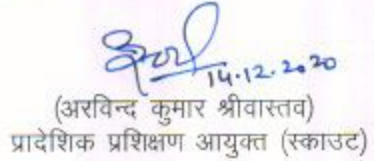 14.12.2020
(अरविन्द कुमार श्रीवास्तव)
प्रादेशिक प्रशिक्षण आयुक्त (स्काउट)